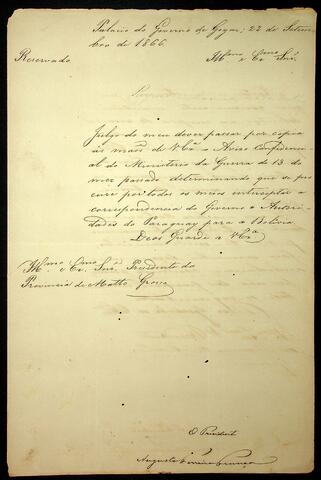 Palacio do Governo de Goyaz, 22 de Setem-
bro de 1866.
Reservado
Illmo e Exmo Snr.
Julgo do meu dever passar por copia
ás mãos de V. Exª o Aviso Confidenci-
al do Ministerio da Guerra de 13 do
mez passado determinando que se pro
cure por todos os meios interceptar a
correspondencia do Governo e Autori-
dades do Paraguay para a Bolivia.
Deos Guarde a V. Exª
Illmo e Exmo Snr. Presidente da
Provincia de Matto Grosso
O Presidente
Augusto Ferreira França